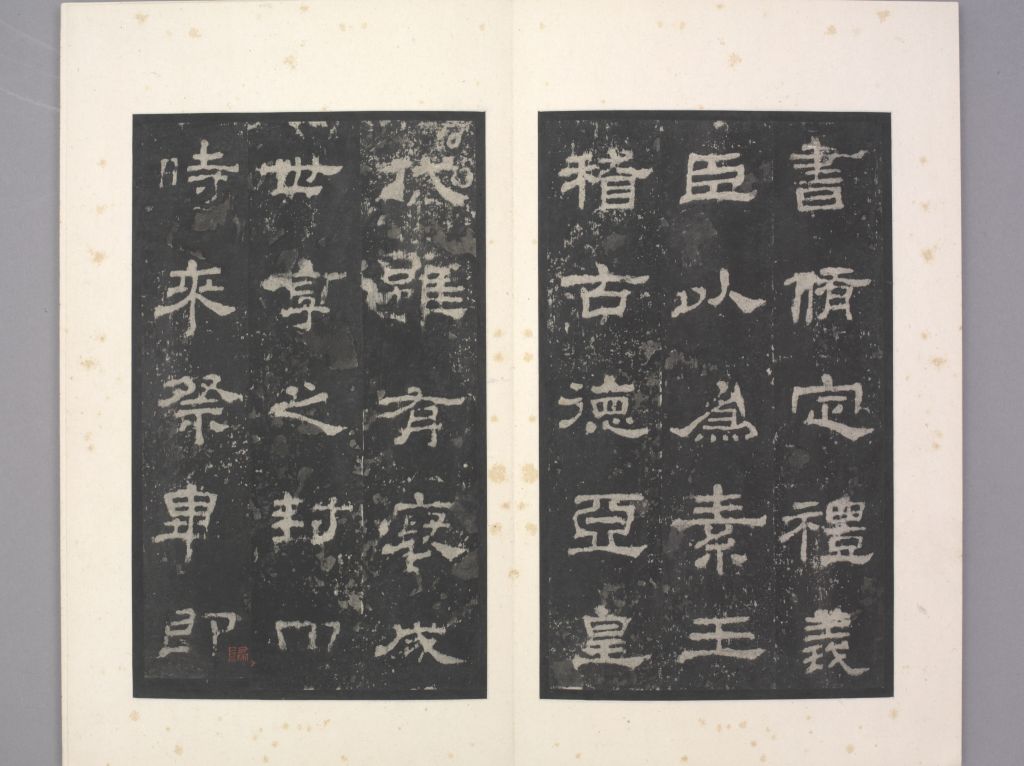 書脩定禮義
臣以爲素王
稽古德亞皇
代雖有褒成
世享之封四
時來祭畢即